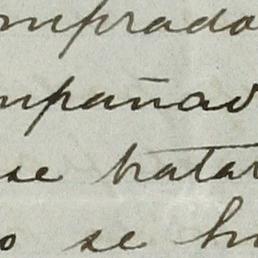 mprado
mpañad
se tratar
o se h